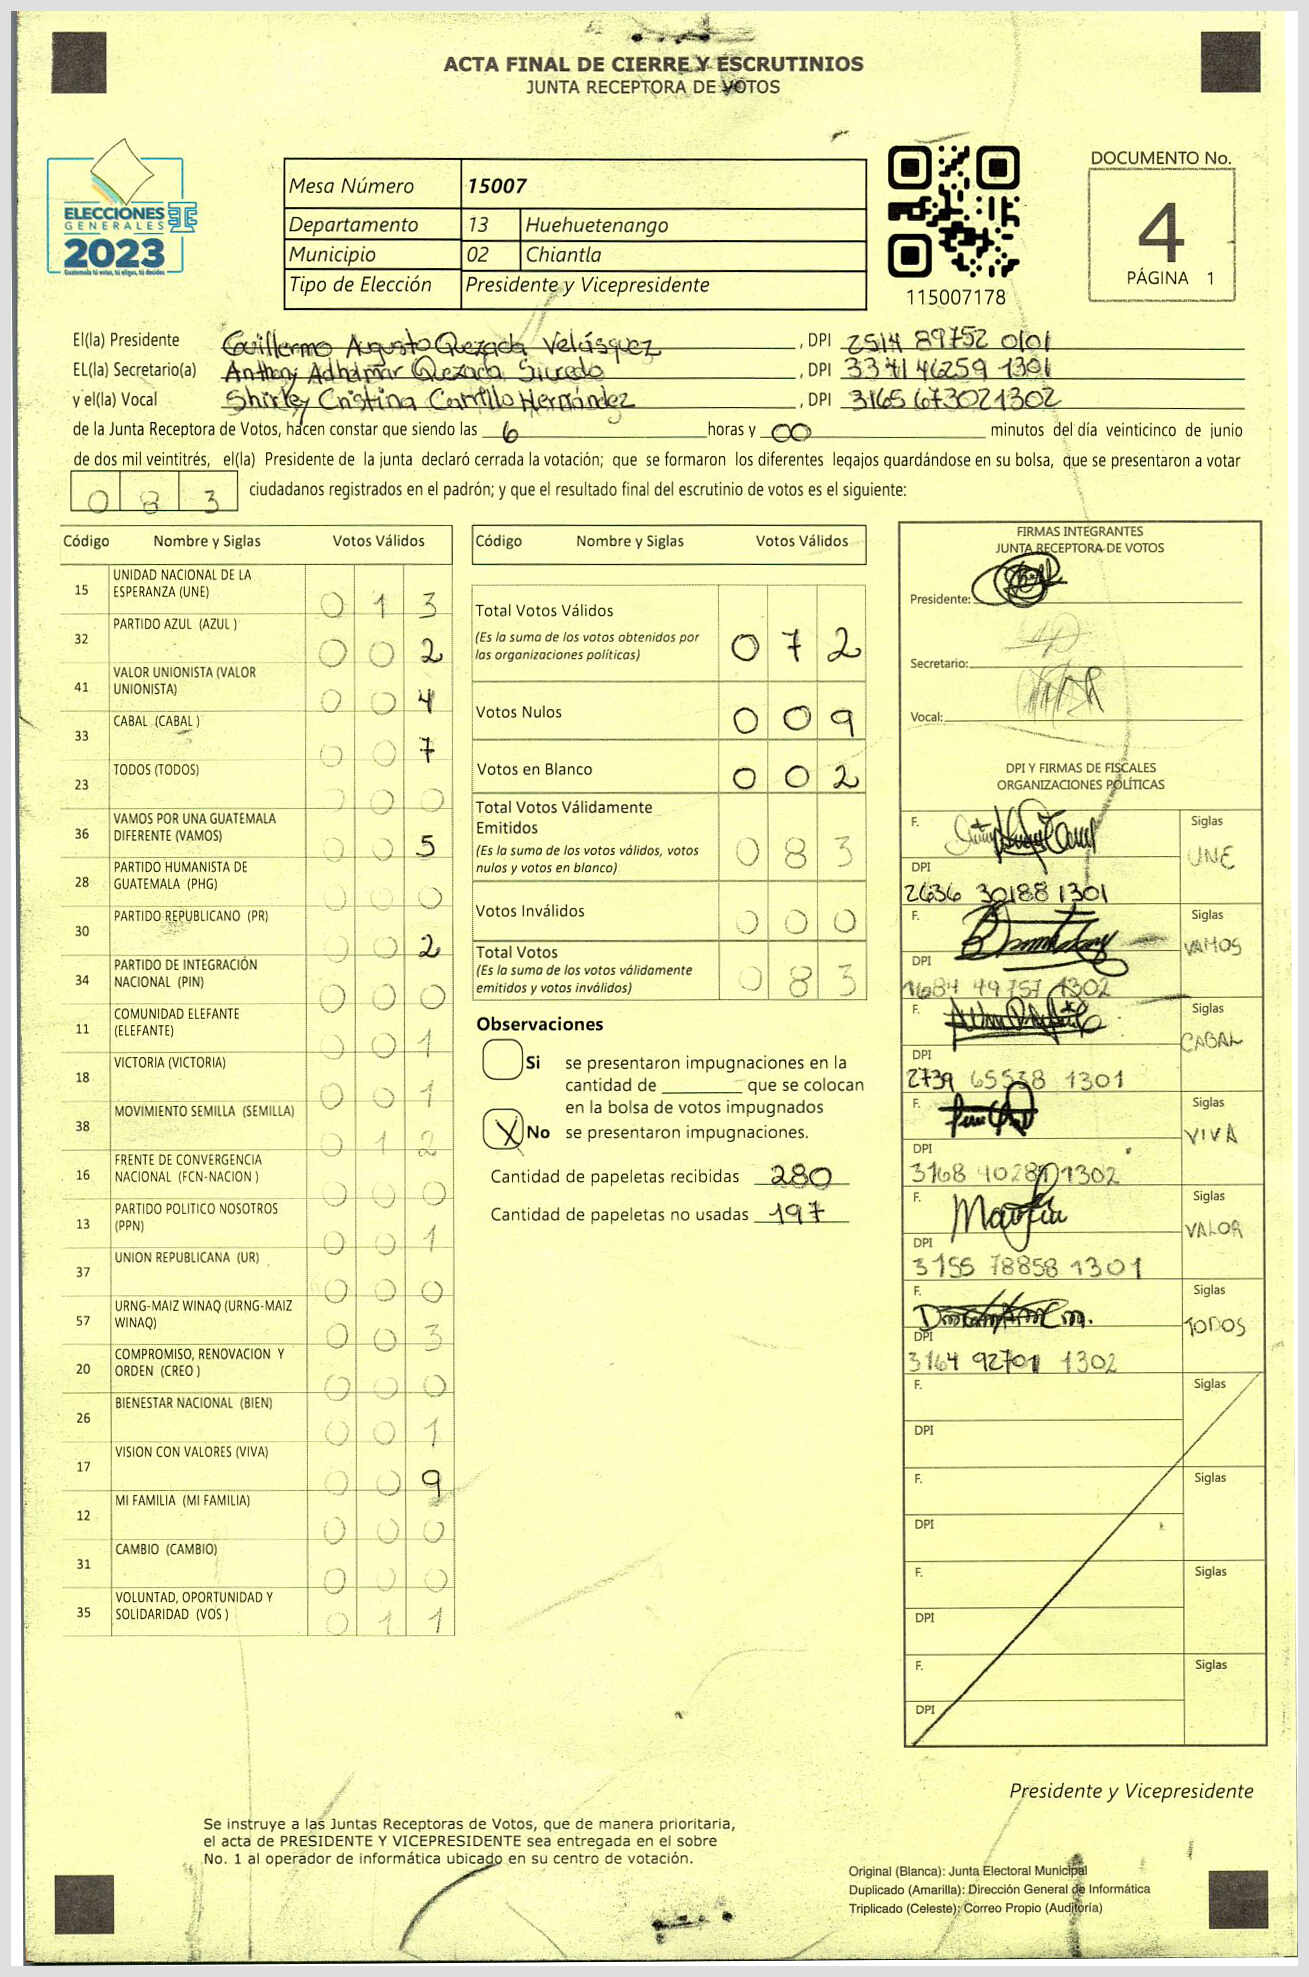 ACTA FINAL DE CIERRE Y ESCRUTINIOS
JUNTA RECEPTORA DE VOTOS
ELECCIONES
GENERALES
2023
Guatemala tú votas, tú eliges, tú decides
Mesa Número 15007
Departamento 13 Huehuetenango
Municipio 02 Chiantla
Tipo de Elección Presidente y Vicepresidente
115007178
DOCUMENTO No.
4
PÁGINA 1
El(la) Presidente Guillermo Augusto Quezada Velásquez, DPI 2514 89752 0101
EL(la) Secretario(a) Anthony Adhelmar Quezada, DPI 3341 46259 1301
y el(la) Vocal Shirley Cristina Carrillo Hernández, DPI 3165 67302 1302
de la Junta Receptora de Votos, hacen constar que siendo las 6 horas y 00 minutos del día veinticinco de junio
de dos mil veintitrés, el(la) Presidente de la junta declaró cerrada la votación; que se formaron los diferentes legajos guardándose en su bolsa, que se presentaron a votar
083 ciudadanos registrados en el padrón; y que el resultado final del escrutinio de votos es el siguiente:
Código Nombre y Siglas Votos Válidos
15 UNIDAD NACIONAL DE LA ESPERANZA (UNE) 0 1 3
32 PARTIDO AZUL (AZUL ) 0 0 2
41 VALOR UNIONISTA (VALOR UNIONISTA) 0 0 4
33 CABAL (CABAL ) 0 0 7
23 TODOS (TODOS) 0 0 0
36 VAMOS POR UNA GUATEMALA DIFERENTE (VAMOS) 0 0 5
28 PARTIDO HUMANISTA DE GUATEMALA (PHG) 0 0 0
30 PARTIDO REPUBLICANO (PR) 0 0 2
34 PARTIDO DE INTEGRACIÓN NACIONAL (PIN) 0 0 0
11 COMUNIDAD ELEFANTE (ELEFANTE) 0 0 1
18 VICTORIA (VICTORIA) 0 0 1
38 MOVIMIENTO SEMILLA (SEMILLA) 0 1 2
16 FRENTE DE CONVERGENCIA NACIONAL (FCN-NACION ) 0 0 0
13 PARTIDO POLITICO NOSOTROS (PPN) 0 0 1
37 UNION REPUBLICANA (UR) 0 0 0
57 URNG-MAIZ WINAQ (URNG-MAIZ WINAQ) 0 0 3
20 COMPROMISO, RENOVACION Y ORDEN (CREO ) 0 0 0
26 BIENESTAR NACIONAL (BIEN) 0 0 1
17 VISION CON VALORES (VIVA) 0 0 9
12 MI FAMILIA (MI FAMILIA) 0 0 0
31 CAMBIO (CAMBIO) 0 0 0
35 VOLUNTAD, OPORTUNIDAD Y SOLIDARIDAD (VOS ) 0 1 1
Código Nombre y Siglas Votos Válidos
Total Votos Válidos 0 7 2
(Es la suma de los votos obtenidos por
las organizaciones políticas)
Votos Nulos 0 0 9
Votos en Blanco 0 0 2
Total Votos Válidamente
Emitidos 0 8 3
(Es la suma de los votos válidos, votos
nulos y votos en blanco)
Votos Inválidos 0 0 0
Total Votos 0 8 3
(Es la suma de los votos válidamente
emitidos y votos inválidos)
Observaciones
Si se presentaron impugnaciones en la
cantidad de ________ que se colocan
en la bolsa de votos impugnados
X No se presentaron impugnaciones.
Cantidad de papeletas recibidas 280
Cantidad de papeletas no usadas 197
FIRMAS INTEGRANTES
JUNTA RECEPTORA DE VOTOS
Presidente:
Secretario:
Vocal:
DPI Y FIRMAS DE FISCALES
ORGANIZACIONES POLÍTICAS
F. Siglas UNE
DPI
2636 30188 1301
F. Siglas VAMOS
DPI
1684 49757 1302
F. Siglas CABAL
DPI
2739 65538 1301
F. Siglas VIVA
DPI
3168 40289 1302
F. Siglas VALOR
DPI
3155 78858 1301
F. Siglas TODOS
DPI
3164 92701 1302
F. Siglas
DPI
F. Siglas
DPI
F. Siglas
DPI
F. Siglas
DPI
Presidente y Vicepresidente
Se instruye a las Juntas Receptoras de Votos, que de manera prioritaria,
el acta de PRESIDENTE Y VICEPRESIDENTE sea entregada en el sobre
No. 1 al operador de informática ubicado en su centro de votación.
Original (Blanca): Junta Electoral Municipal
Duplicado (Amarilla): Dirección General de Informática
Triplicado (Celeste): Correo Propio (Auditoría)